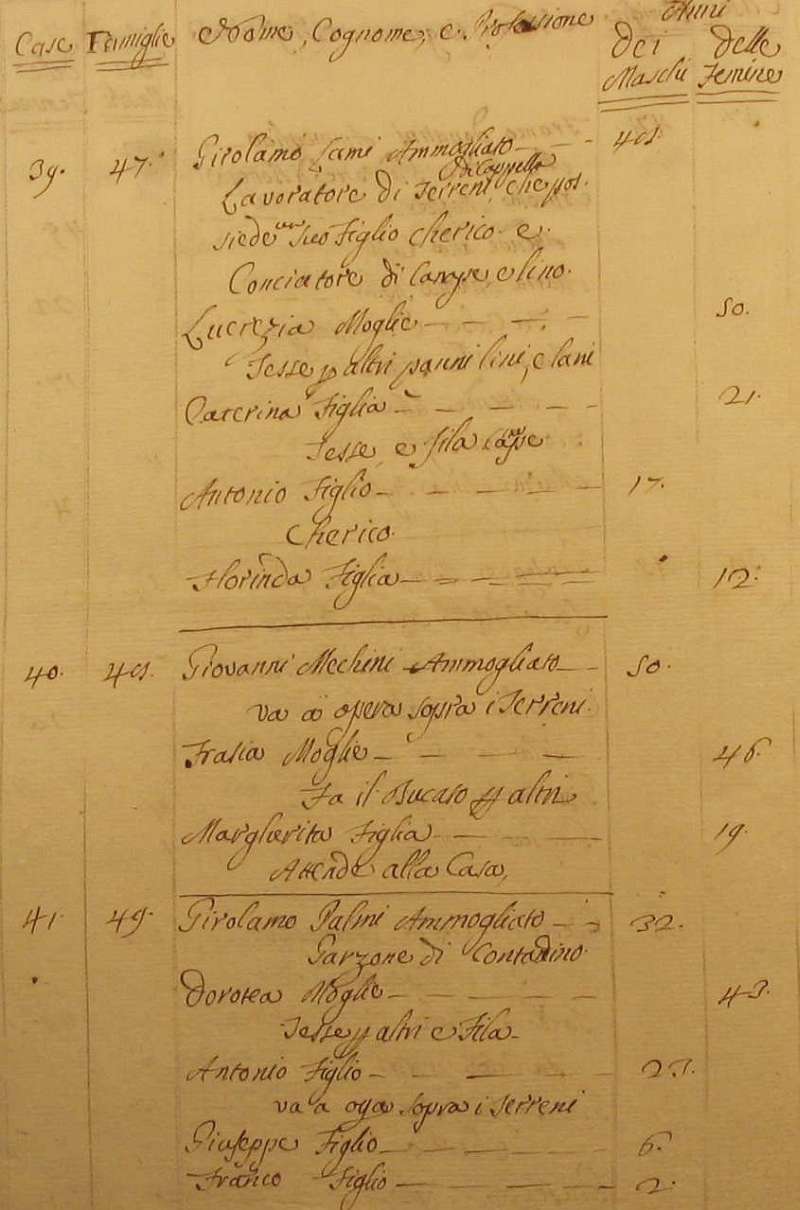 Anni
Case Famiglie Nome, Cognome, e Professione dei delle
Maschi Femine
39. 47. Girolamo Lami Ammogliato
di Cappella
Lavoratore di Terreni, che pos-
siede un suo Figlio Cherico e
Conciatore di Canape, e lino.
Lucrezia Moglie 50.
Tesse p altri panni lini, e lani
Caterina Figlia 21.
Tesse, e fila Canape
Antonio Figlio 17.
Cherico.
Florinda Figlia 12.
40. 48. Giovanni Mechini Ammogliato 50.
va a opera sopra i Terreni.
Frasia Moglie 46.
Fa il Bucato p altri
Margherita Figlia 19.
Attende alla Casa,
41. 49. Girolamo Palmi Ammogliato 32.
Garzone di Contadino.
Dorotea Moglie 43.
Tesse p altri e Fila
Antonio Figlio
va a opa sopra i Terreni
Giuseppe Figlio 6.
Franco Figlio 2.